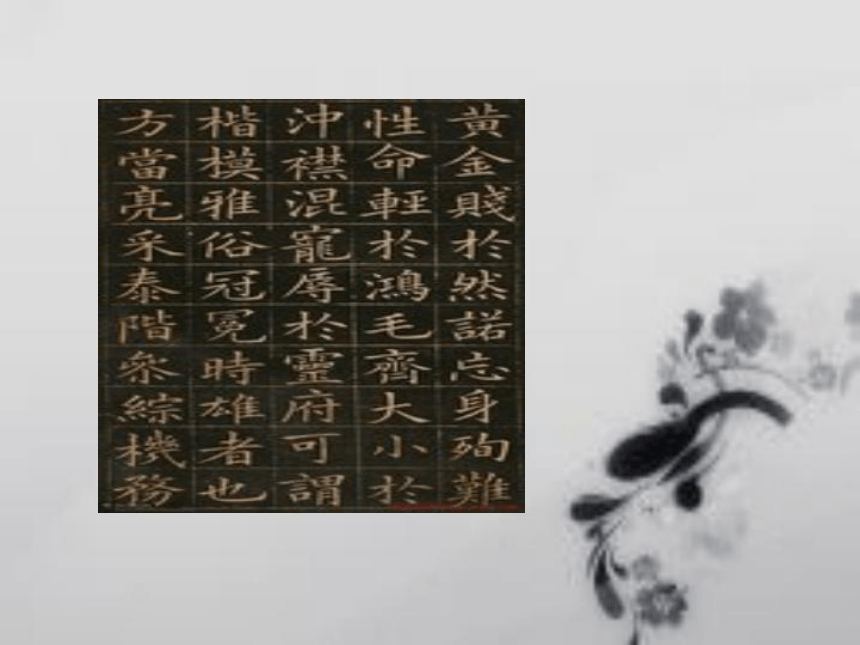 黃金賤於然諾忘身殉難
性命輕於鴻毛齊大小於
沖襟混寵辱於靈府可謂
楷模雅俗冠冕時雄者也
方當亮采泰階參綜機務